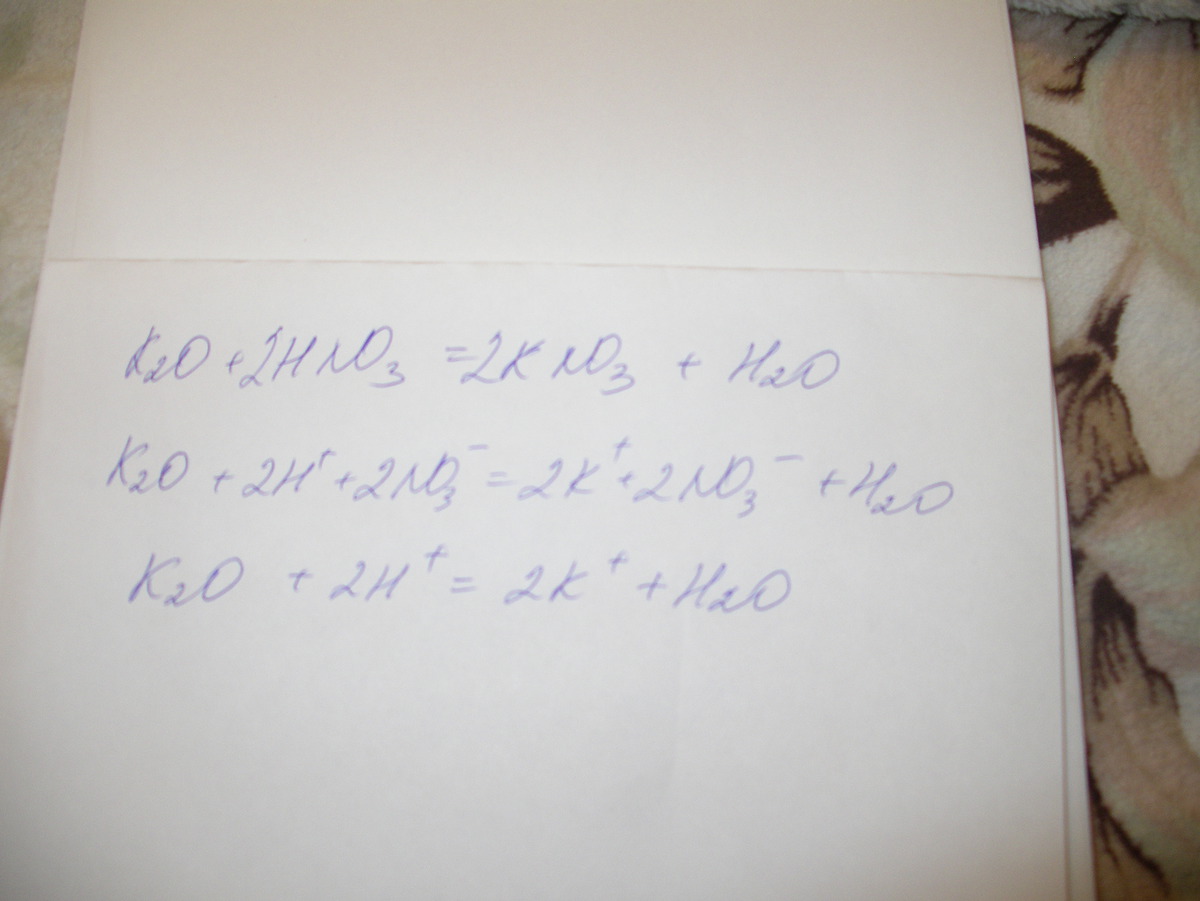 K₂O + 2HNO₃ = 2KNO₃ + H₂O
K₂O + 2H⁺ + 2NO₃⁻ = 2K⁺ + 2NO₃⁻ + H₂O
K₂O + 2H⁺ = 2K⁺ + H₂O